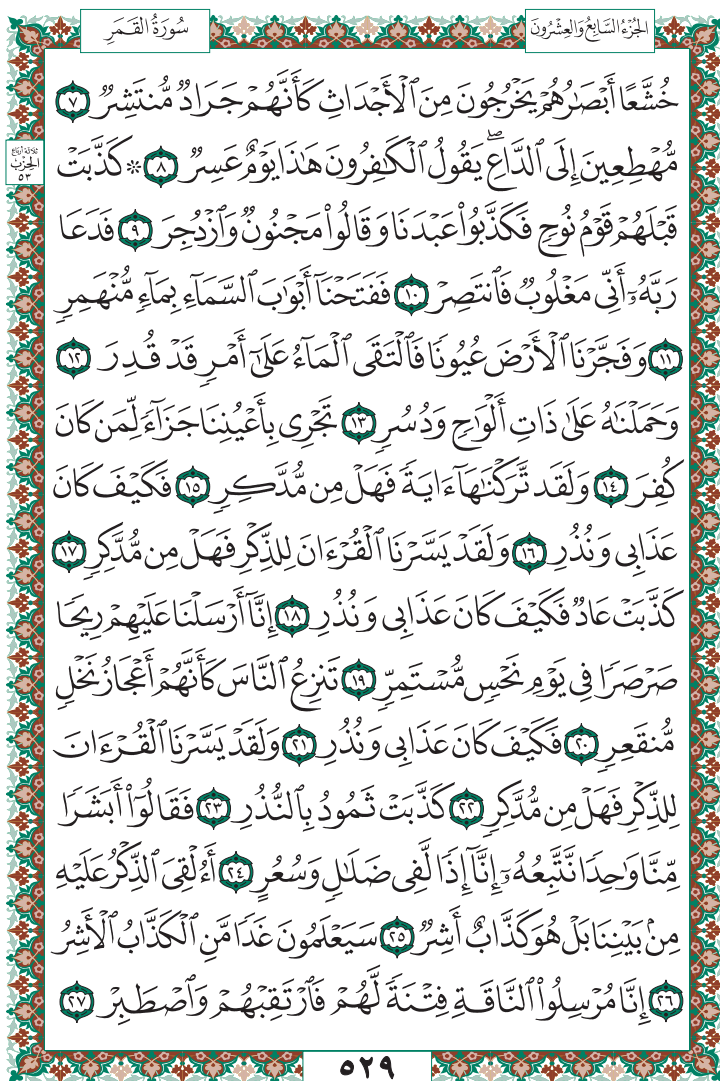 الجُزْءُ السَّابِعُ وَالعِشْرُونَ
سُورَةُ القَمَرِ
خُشَّعًا أَبْصَٰرُهُمْ يَخْرُجُونَ مِنَ ٱلْأَجْدَاثِ كَأَنَّهُمْ جَرَادٌ مُّنتَشِرٌ ٧
مُّهْطِعِينَ إِلَى ٱلدَّاعِ ۖ يَقُولُ ٱلْكَٰفِرُونَ هَٰذَا يَوْمٌ عَسِرٌ ٨ ۞ كَذَّبَتْ
ثلاثة أرباع
الحِزْب
٥٣
قَبْلَهُمْ قَوْمُ نُوحٍ فَكَذَّبُوا۟ عَبْدَنَا وَقَالُوا۟ مَجْنُونٌ وَٱزْدُجِرَ ٩ فَدَعَا
رَبَّهُۥٓ أَنِّى مَغْلُوبٌ فَٱنتَصِرْ ١٠ فَفَتَحْنَآ أَبْوَٰبَ ٱلسَّمَآءِ بِمَآءٍ مُّنْهَمِرٍ
١١ وَفَجَّرْنَا ٱلْأَرْضَ عُيُونًا فَٱلْتَقَى ٱلْمَآءُ عَلَىٰٓ أَمْرٍ قَدْ قُدِرَ ١٢
وَحَمَلْنَٰهُ عَلَىٰ ذَاتِ أَلْوَٰحٍ وَدُسُرٍ ١٣ تَجْرِى بِأَعْيُنِنَا جَزَآءً لِّمَن كَانَ
كُفِرَ ١٤ وَلَقَد تَّرَكْنَٰهَآ ءَايَةً فَهَلْ مِن مُّدَّكِرٍ ١٥ فَكَيْفَ كَانَ
عَذَابِى وَنُذُرِ ١٦ وَلَقَدْ يَسَّرْنَا ٱلْقُرْءَانَ لِلذِّكْرِ فَهَلْ مِن مُّدَّكِرٍ ١٧
كَذَّبَتْ عَادٌ فَكَيْفَ كَانَ عَذَابِى وَنُذُرِ ١٨ إِنَّآ أَرْسَلْنَا عَلَيْهِمْ رِيحًا
صَرْصَرًا فِى يَوْمِ نَحْسٍ مُّسْتَمِرٍّ ١٩ تَنزِعُ ٱلنَّاسَ كَأَنَّهُمْ أَعْجَازُ نَخْلٍ
مُّنقَعِرٍ ٢٠ فَكَيْفَ كَانَ عَذَابِى وَنُذُرِ ٢١ وَلَقَدْ يَسَّرْنَا ٱلْقُرْءَانَ
لِلذِّكْرِ فَهَلْ مِن مُّدَّكِرٍ ٢٢ كَذَّبَتْ ثَمُودُ بِٱلنُّذُرِ ٢٣ فَقَالُوٓا۟ أَبَشَرًا
مِّنَّا وَٰحِدًا نَّتَّبِعُهُۥٓ إِنَّآ إِذًا لَّفِى ضَلَٰلٍ وَسُعُرٍ ٢٤ أَءُلْقِىَ ٱلذِّكْرُ عَلَيْهِ
مِنۢ بَيْنِنَا بَلْ هُوَ كَذَّابٌ أَشِرٌ ٢٥ سَيَعْلَمُونَ غَدًا مَّنِ ٱلْكَذَّابُ ٱلْأَشِرُ
٢٦ إِنَّا مُرْسِلُوا۟ ٱلنَّاقَةِ فِتْنَةً لَّهُمْ فَٱرْتَقِبْهُمْ وَٱصْطَبِرْ ٢٧
٥٢٩